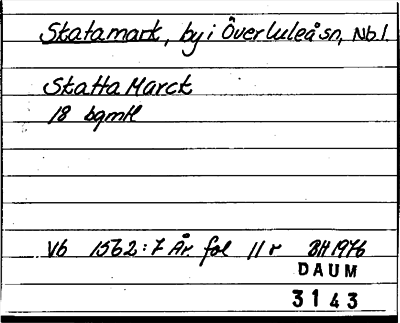 Skatamark, by i Överluleå sn, Nb l.
Skatta Marck
18 bqmtl
Vb 1562:7 År fol 11 r BH 1976
DAUM
3143